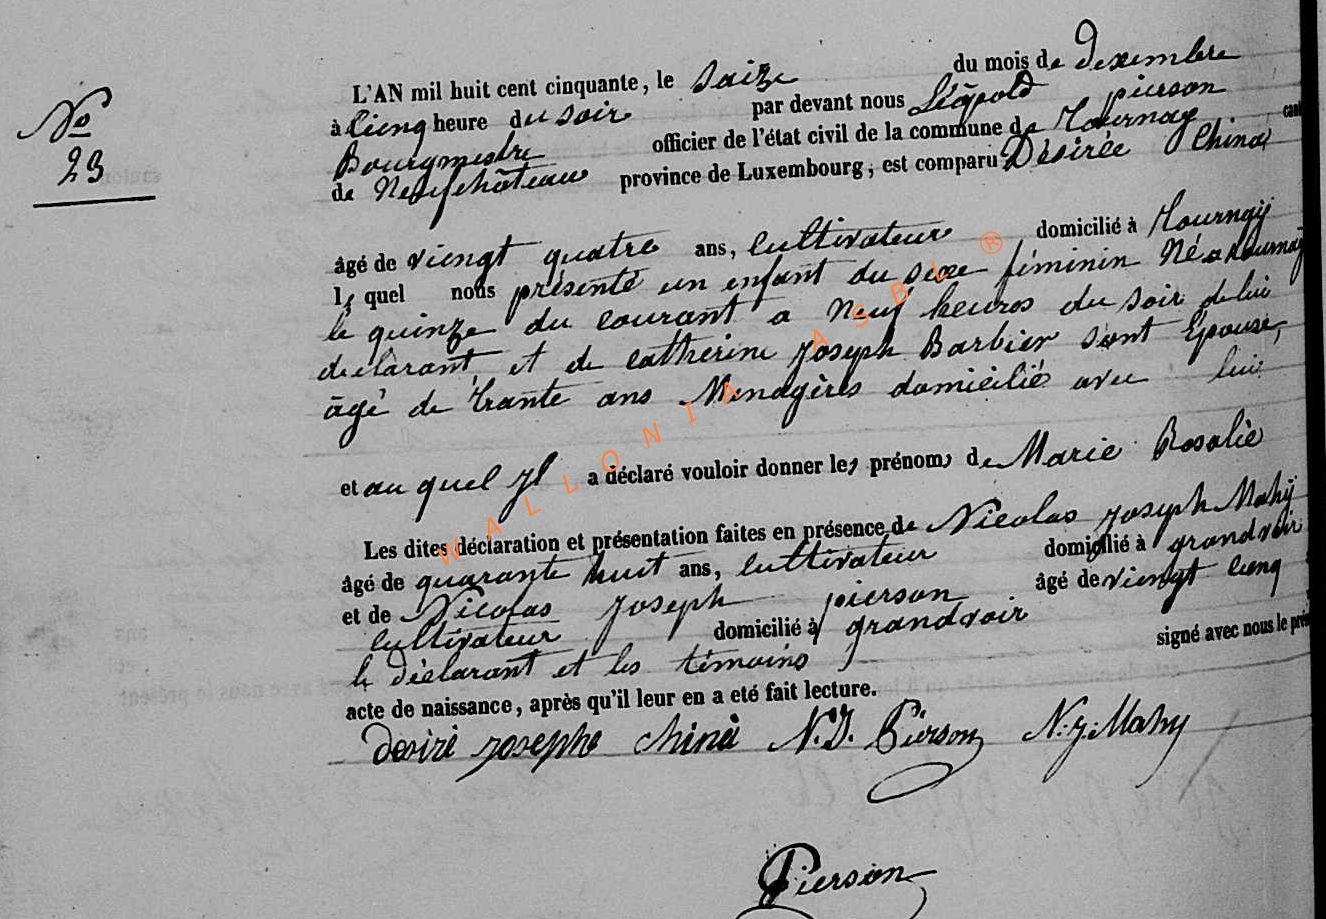 No
23
L'AN mil huit cent cinquante, le Saize du mois de Dexembre
à Cienq heure du soir par devant nous Léopold pierson
Bourgmestre officier de l'état civil de la commune de Tournay
de Neufchâteau province de Luxembourg, est comparu Désirée China
âgé de viengt quatre ans, Cultivateur domicilié à Tourngÿ
le quel nous présenté un enfant du sexe féminin Né a tournay
le quinze du courant a Neuf heures du soir de lui
declarant et de Catherine Joseph Barbier Sont Épouse,
âgé de trante ans Menagères domicilié avec lui
et au quel Jl a déclaré vouloir donner les prénoms de Marie Rosalie
Les dites déclaration et présentation faites en présence de Nicolas Joseph Mahÿ
âgé de quarante huit ans, Cultivateur domicilié à grandvoir
et de Nicolas Joseph pierson âgé de viengt Cienq
Cultivateur domicilié à grandvoir
le déclarant et les témoins signé avec nous le prés
acte de naissance, après qu'il leur en a eté fait lecture.
desiré josephe chinà N.J. Pierson N.J. Mahy
Pierson
WALLONIA ASBL ®